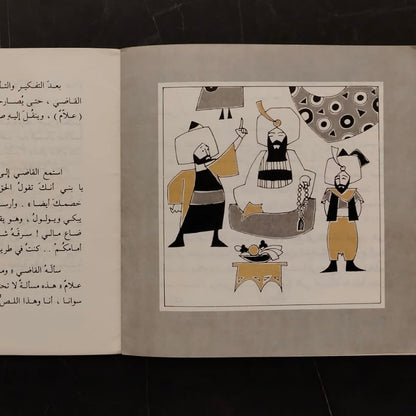 بعدَ التفكيرِ والتأ
القاضي ، حتى يُصارحَ
( علاّم ) ، وينقُلَ إليهِ ص
استمع القاضي إلى
يا بني أنكَ تقولُ الحق
خصمكَ أيضاً » . وارسـ
يبكي ويولولُ ، وهو يقـ
ضاع مالي ! سرقهُ شا
أمامكُم .. كنتُ في طريـ
سألهُ القاضي « ومـ
علام « هذه مسألةٌ لا تحـ
سوانا ، أنا وهذا اللصُّ